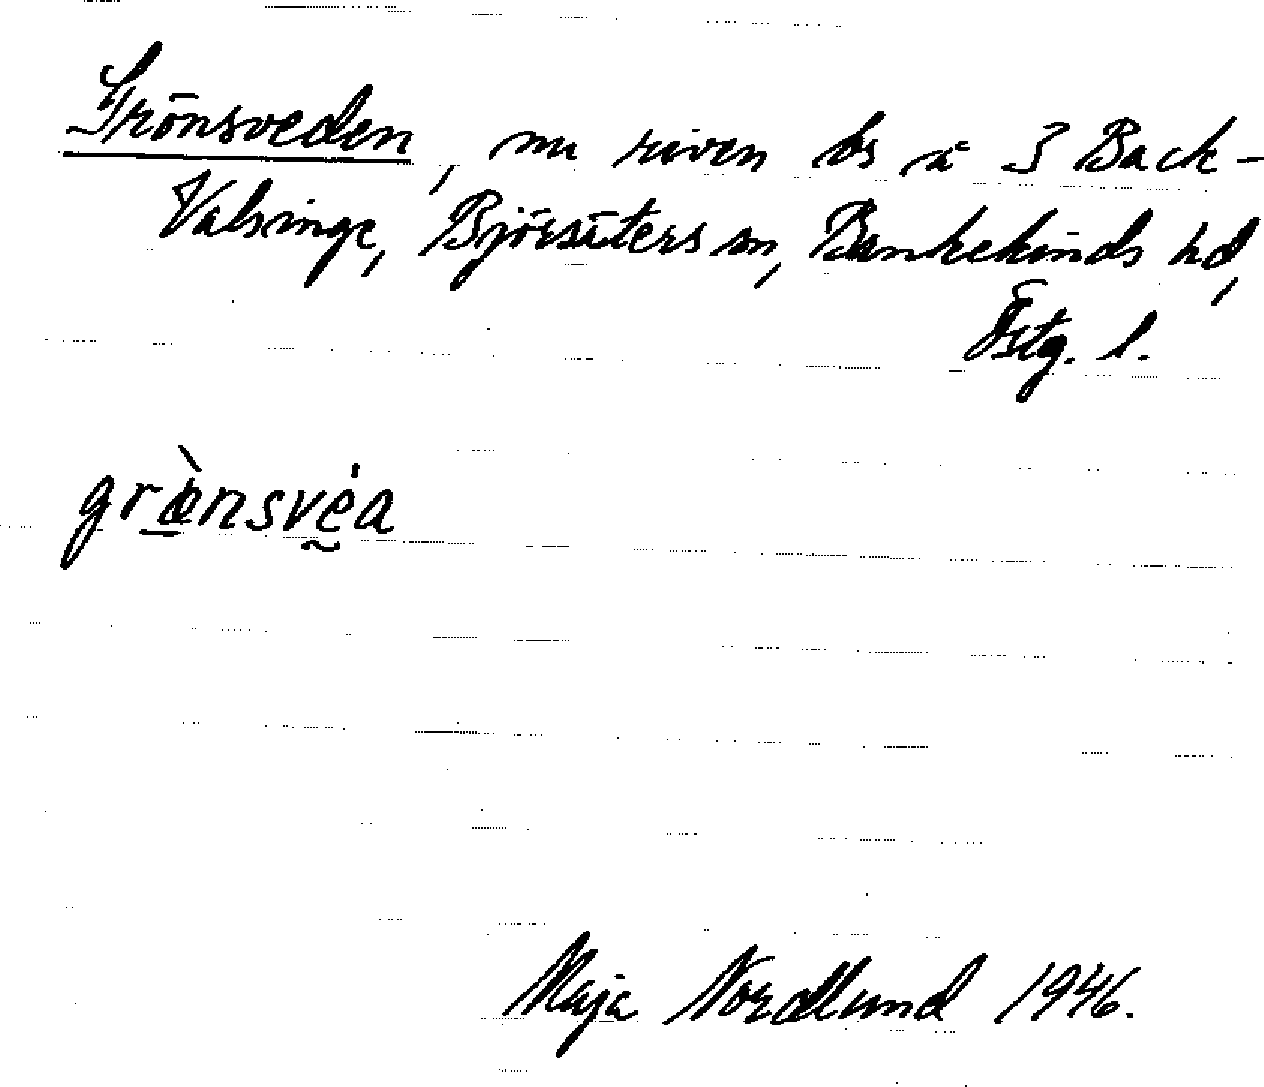 Grönsveden, nu riven bs å 3 Back-
Valsinge, Björsäters sn, Bankekinds hd,
Östg. l.
grænsvéa
Maja Nordlund 1946.